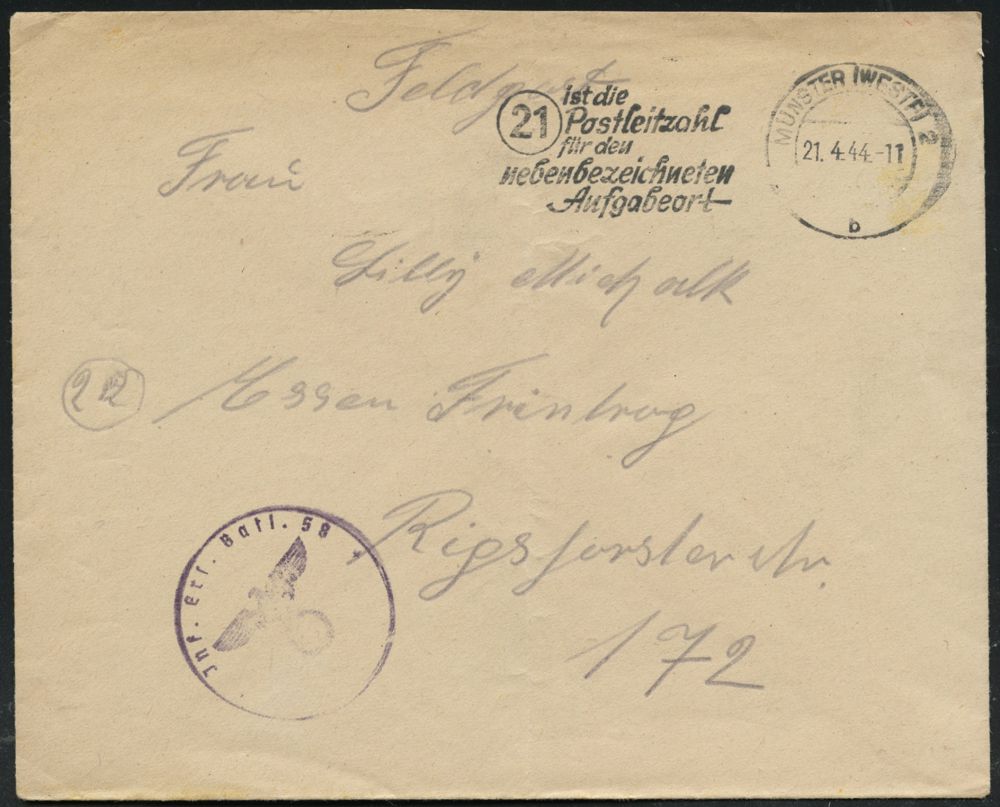 Feldpost
21 ist die
Postleitzahl
für den
nebenbezeichneten
Aufgabeort
MÜNSTER (WESTF) 2
21. 4.44.-11
b
Frau
Lilly Michalk
22 Essen Frintrop
Ripshorsterstr.
172
Inf. Ers. Batl. 58